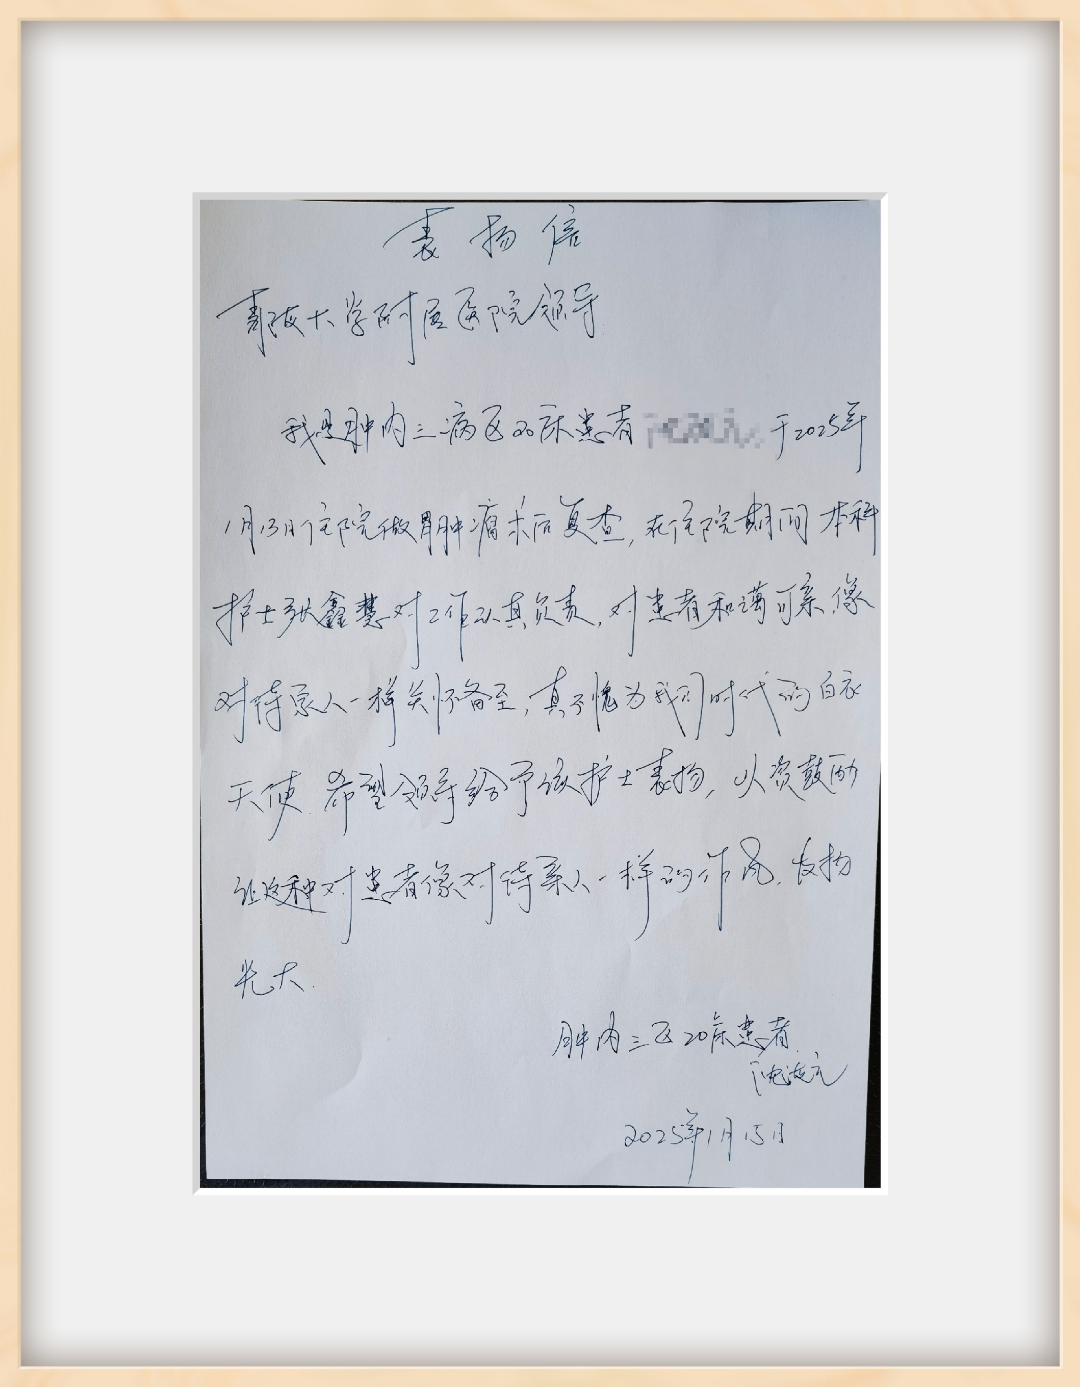 表扬信
青海大学附属医院领导
我是肿内三病区20床患者 于2025年
1月13日住院做胃肿瘤术后复查,在住院期间本科
护士张鑫慧对工作认真负责,对患者和蔼可亲,像
对待亲人一样关怀备至,真不愧为我们时代的白衣
天使.希望领导给予该护士表扬,以资鼓励
让这种对患者像对待亲人一样的作风.发扬
光大.
肿内三区20床患者
2025年1月15日